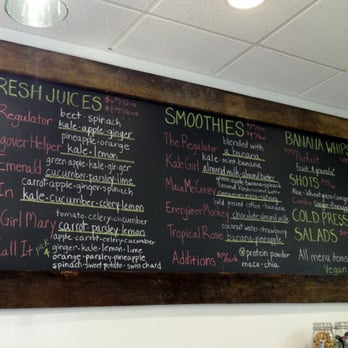 RESH JUICES
Regulator beet-spinach
kale-apple-ginger
gover Helper pineapple-orange
kale-lemon
Emerald green apple-kale-ginger
cucumber-parsley-lime
In carrot-apple-spinach-ginger
kale-cucumber-celery-lemon
Girl Mary tomato-celery-cucumber
carrot-parsley-lemon
all It apple-carrot-celery-cucumber
ginger-kale-lemon-lime
orange-parsley-pineapple
spinach-sweet potato-swiss chard
SMOOTHIES
The Regulator blended with
a banana
Kale Girl kale-mint-banana
almond milk-almond butter
Maca McGreeny
Energizer Monkey cold pressed coffee-banana
chocolate almond milk
Tropical Rose coconut water-strawberry
banana-pineapple
Additions protein powder
maca-chia
BANANA WHIPS
Parfait
fruit & granola
SHOTS
COLD PRESS
SALADS
All menu items
Vegan